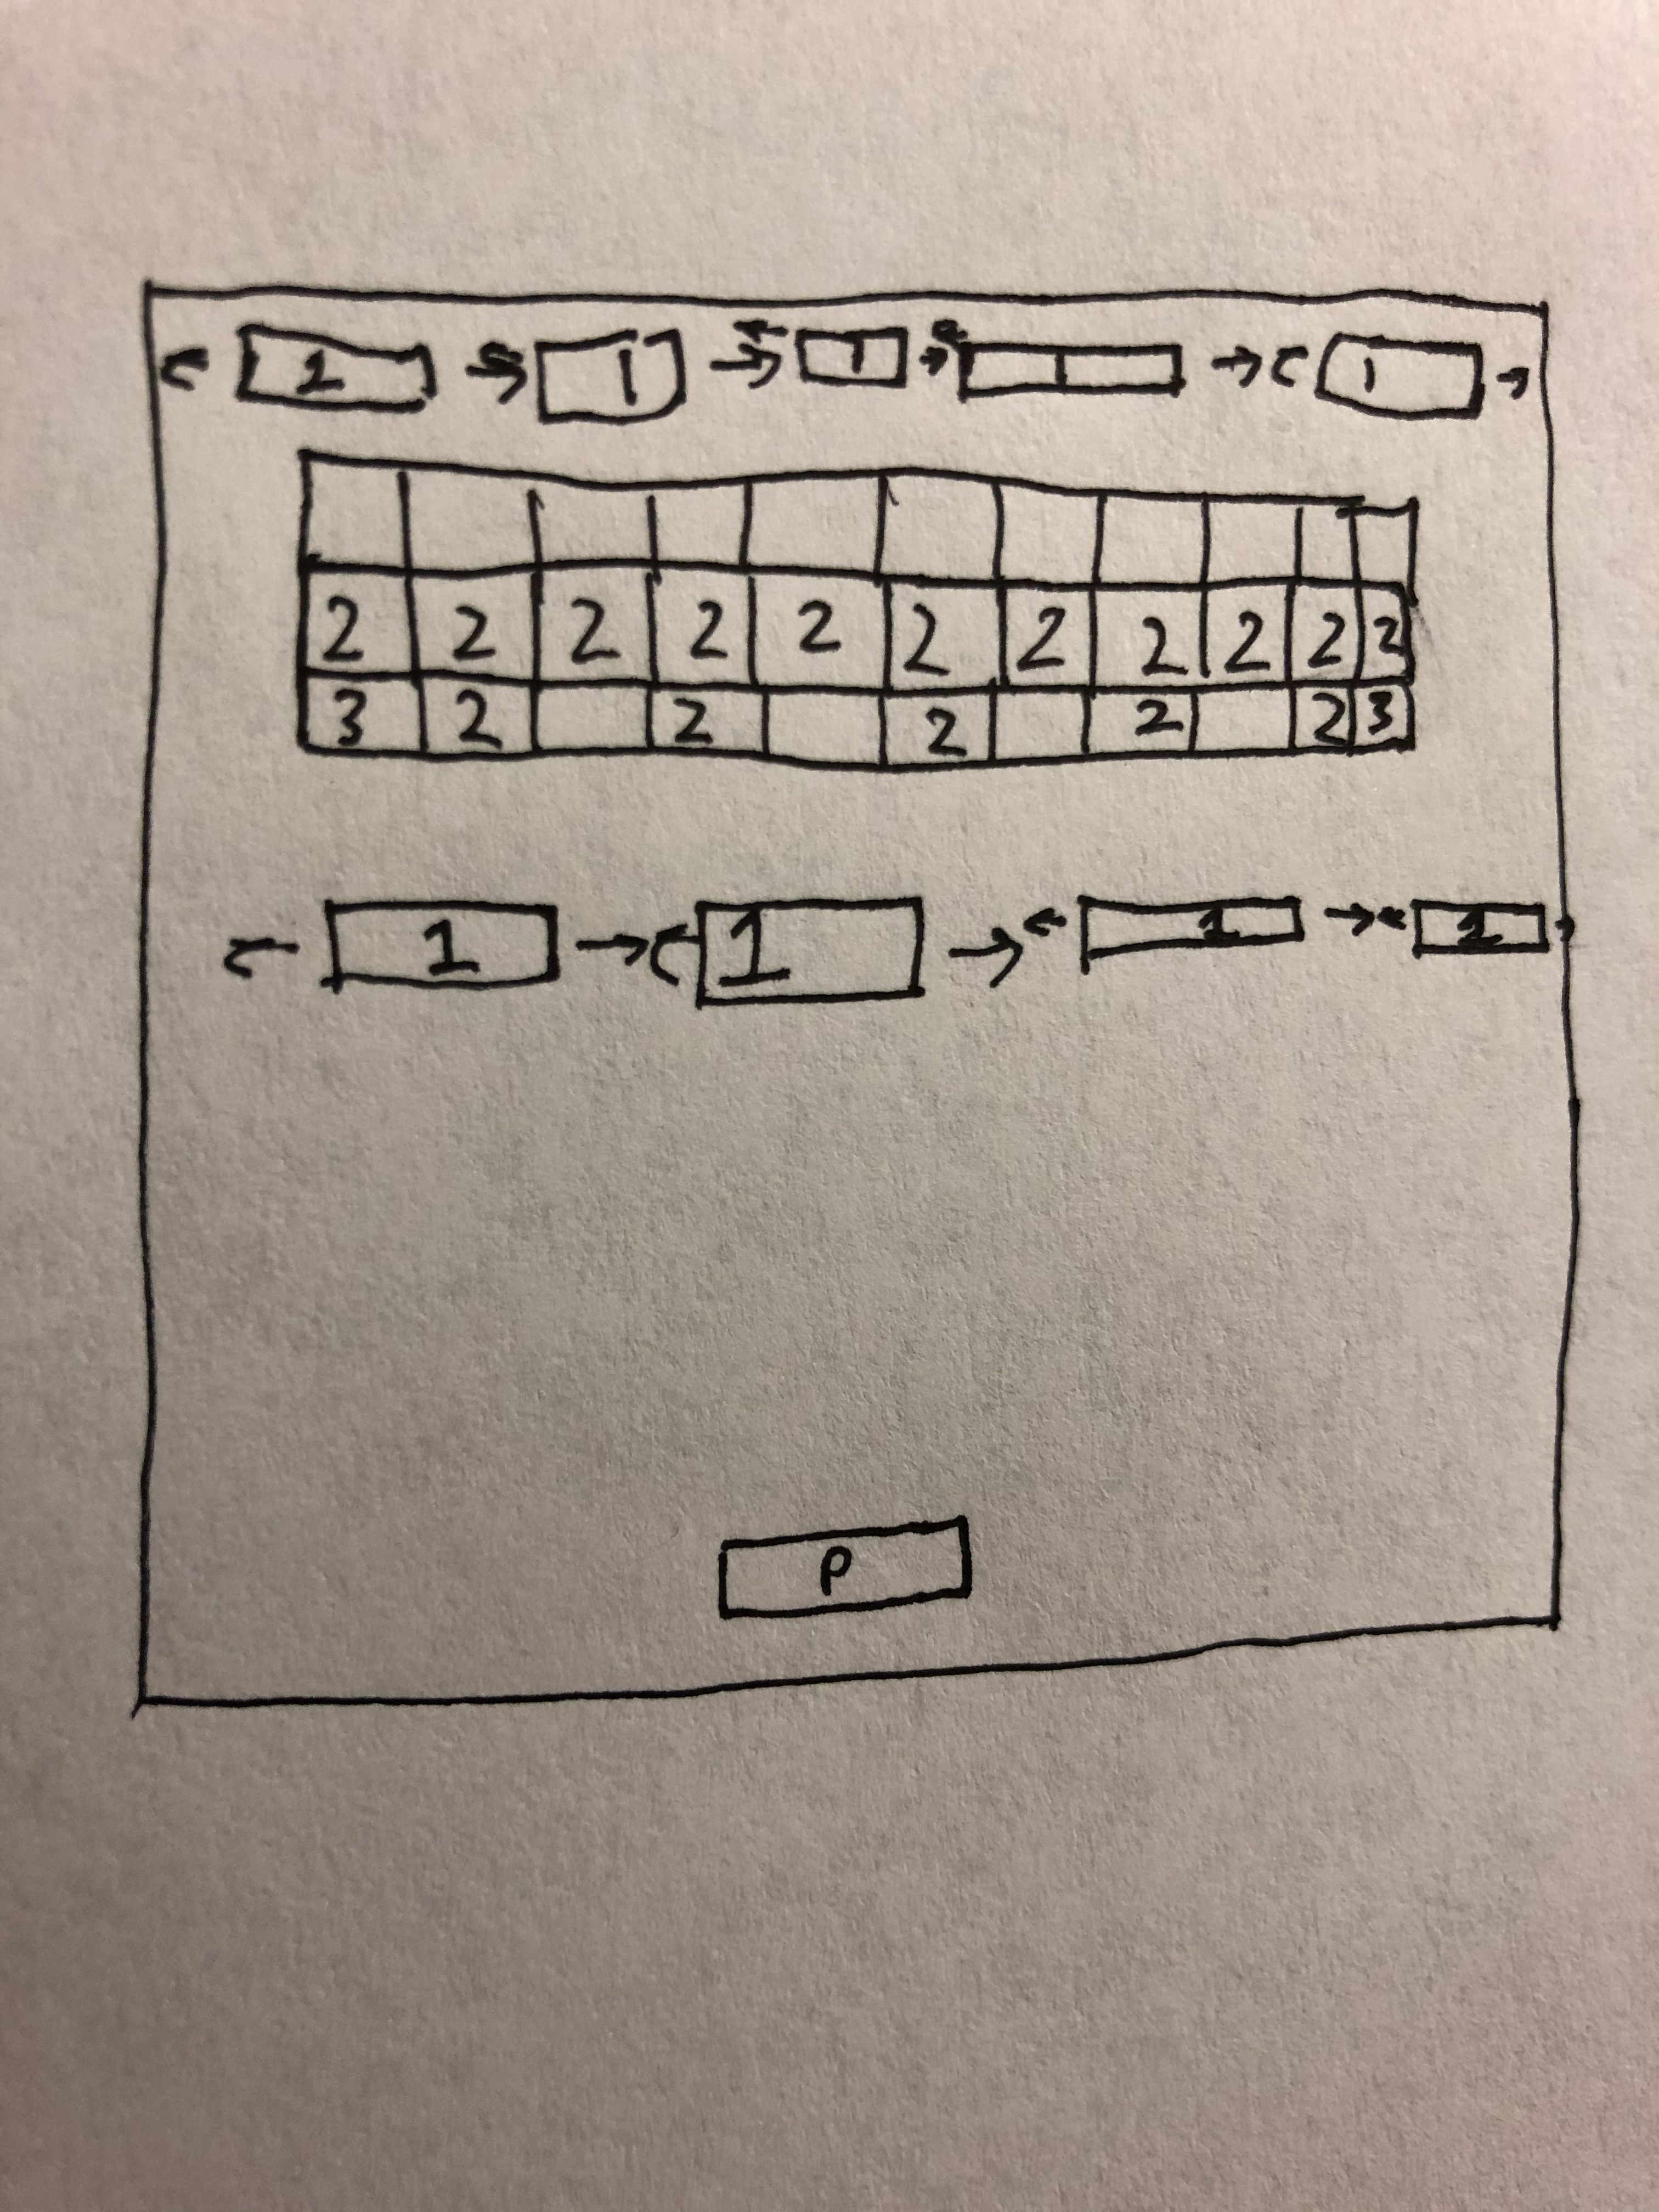 1 1 1 1 1
2 2 2 2 2 2 2 2 2 2 2
3 2 2 2 2 2 3
1 1 1 1
P